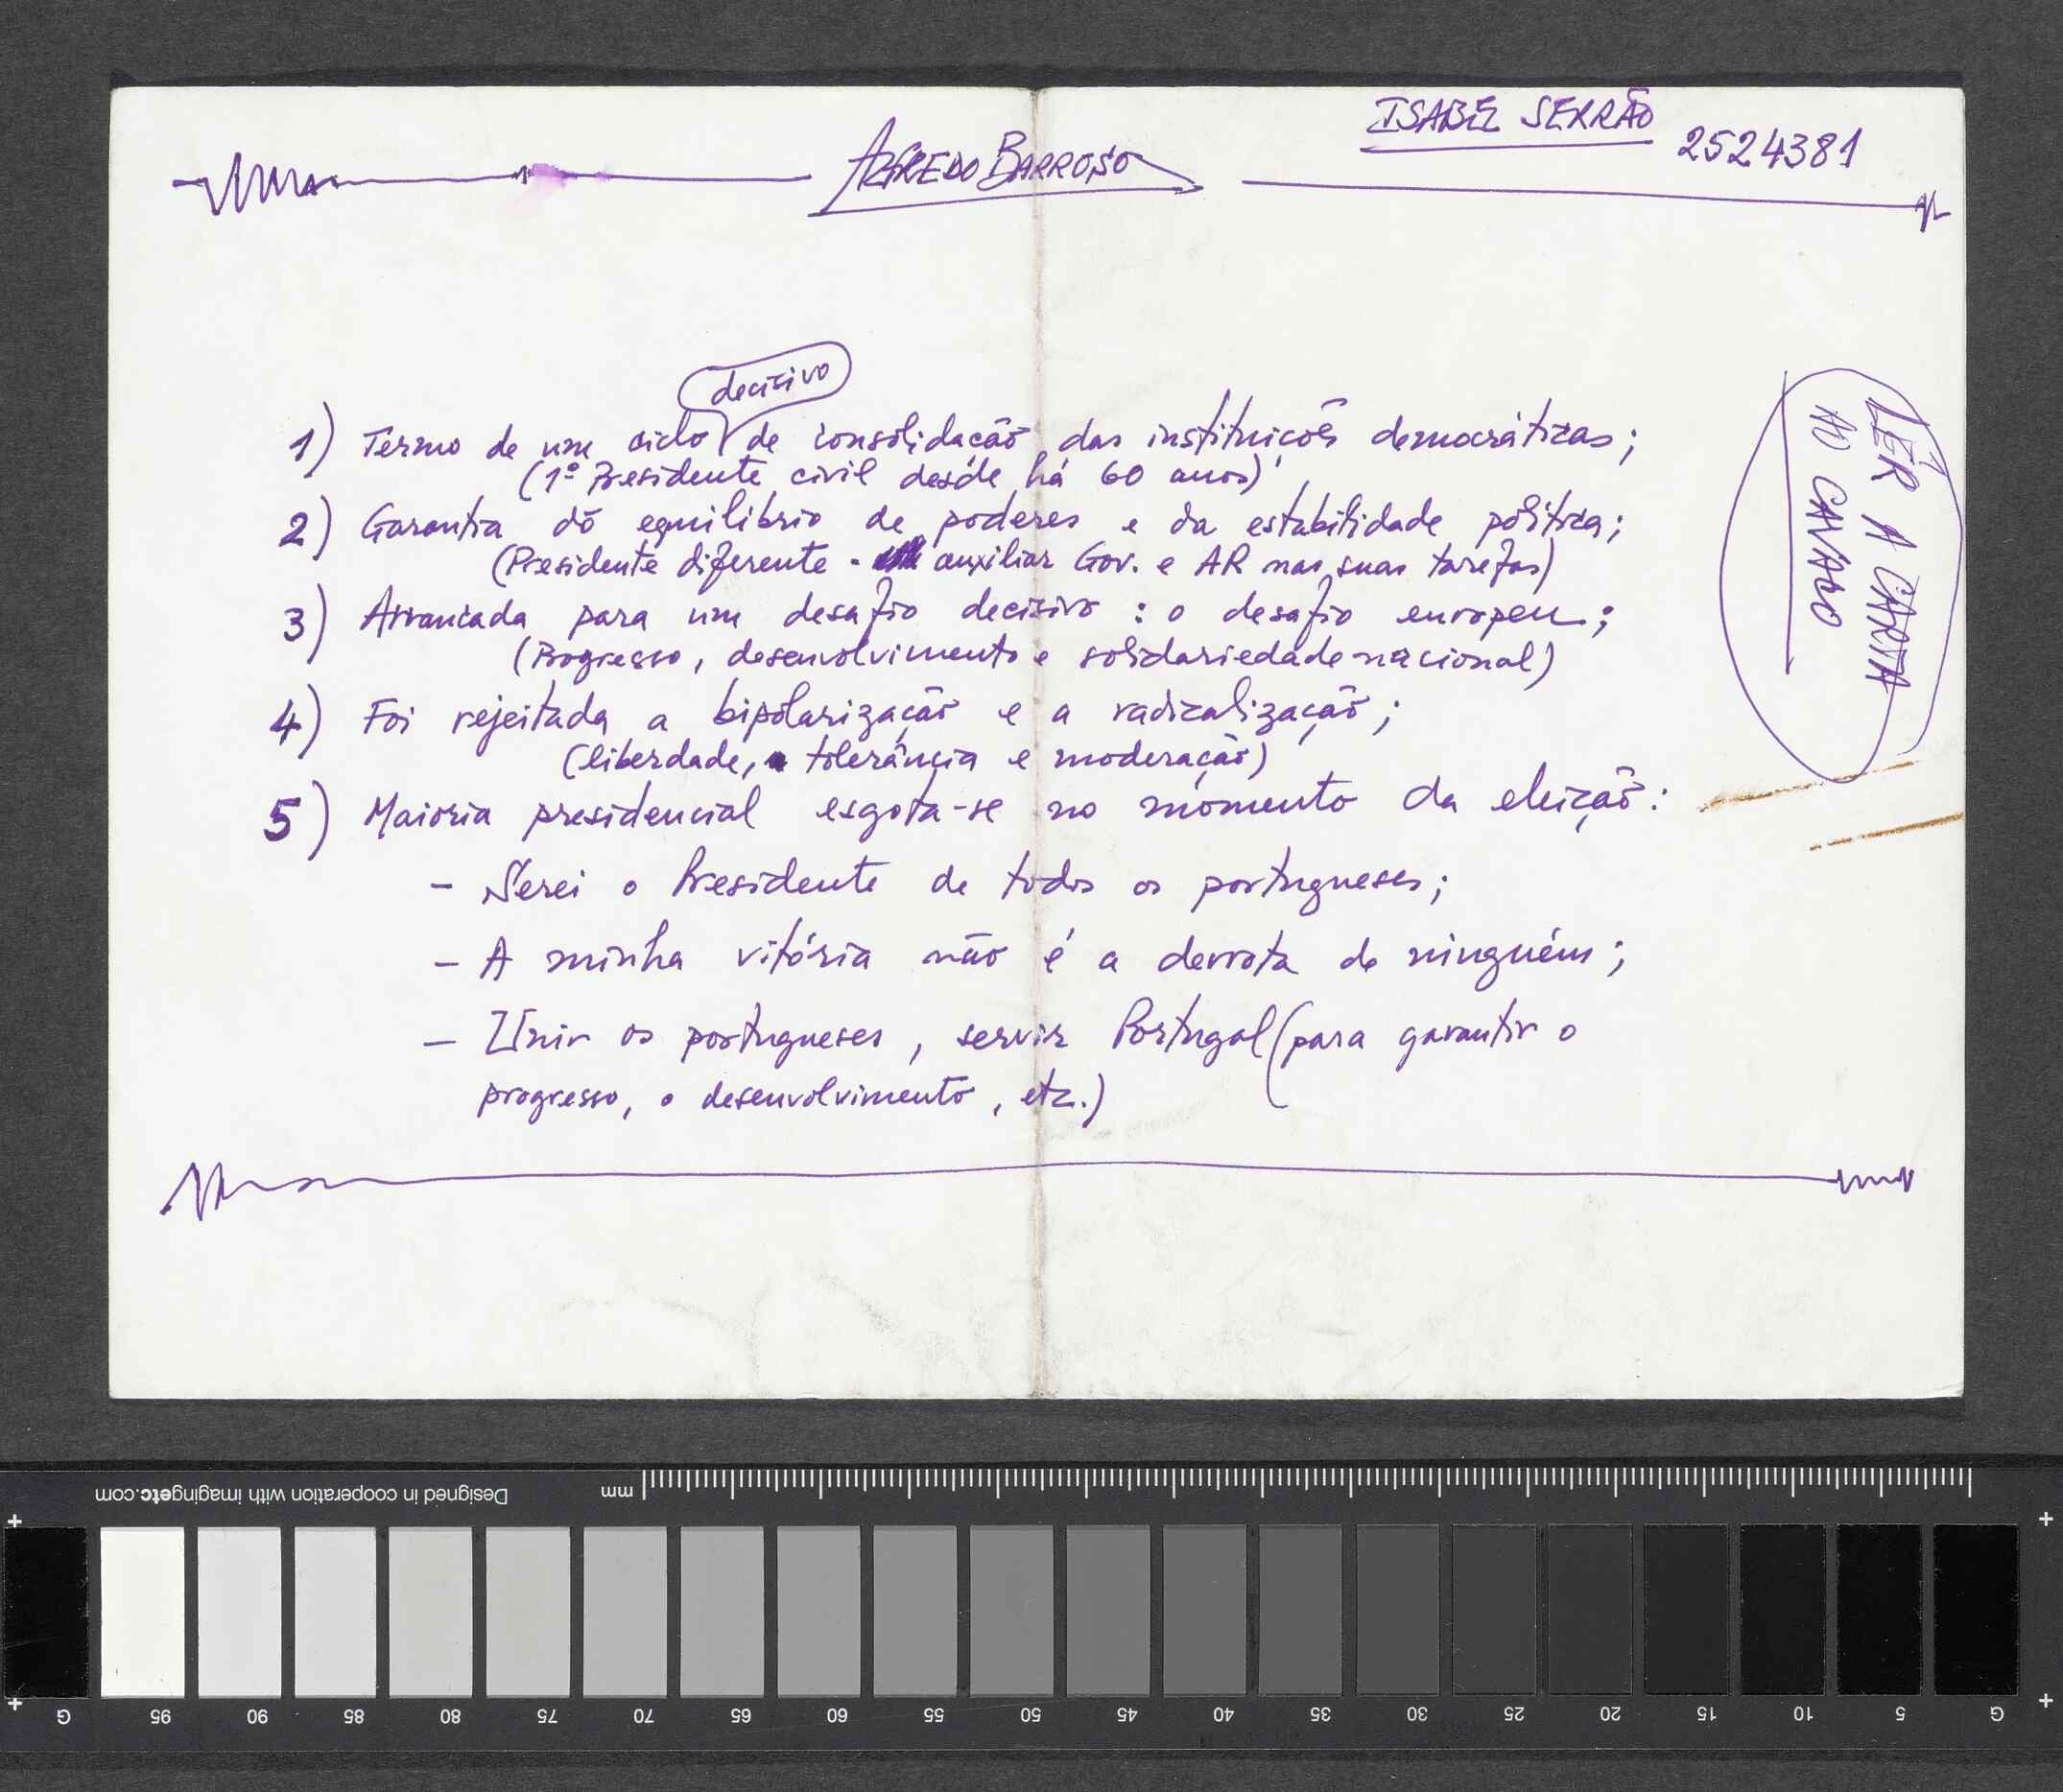 ISABEL SERRÃO
2524381
ALFREDO BARROSO
decisivo
1) Termo de um ciclo de consolidação das instituições democráticas;
(1º Presidente civil desde há 60 anos)
2) Garantia do equilíbrio de poderes e da estabilidade política;
(Presidente diferente - auxiliar Gov. e AR nas suas tarefas)
3) Arrancada para um desafio decisivo : o desafio europeu;
(Progresso, desenvolvimento e solidariedade nacional)
4) Foi rejeitada a bipolarização e a radicalização;
(liberdade, tolerância e moderação)
5) Maioria presidencial esgota-se no momento da eleição:
- Serei o Presidente de todos os portugueses;
- A minha vitória não é a derrota de ninguém;
- Unir os portugueses, servir Portugal (para garantir o
progresso, o desenvolvimento, etc.)
LÊR A CARTA
AO CAVACO
Designed in cooperation with imagingetc.com
mm
G 95 90 85 80 75 70 65 60 55 50 45 40 35 30 25 20 15 10 5 G